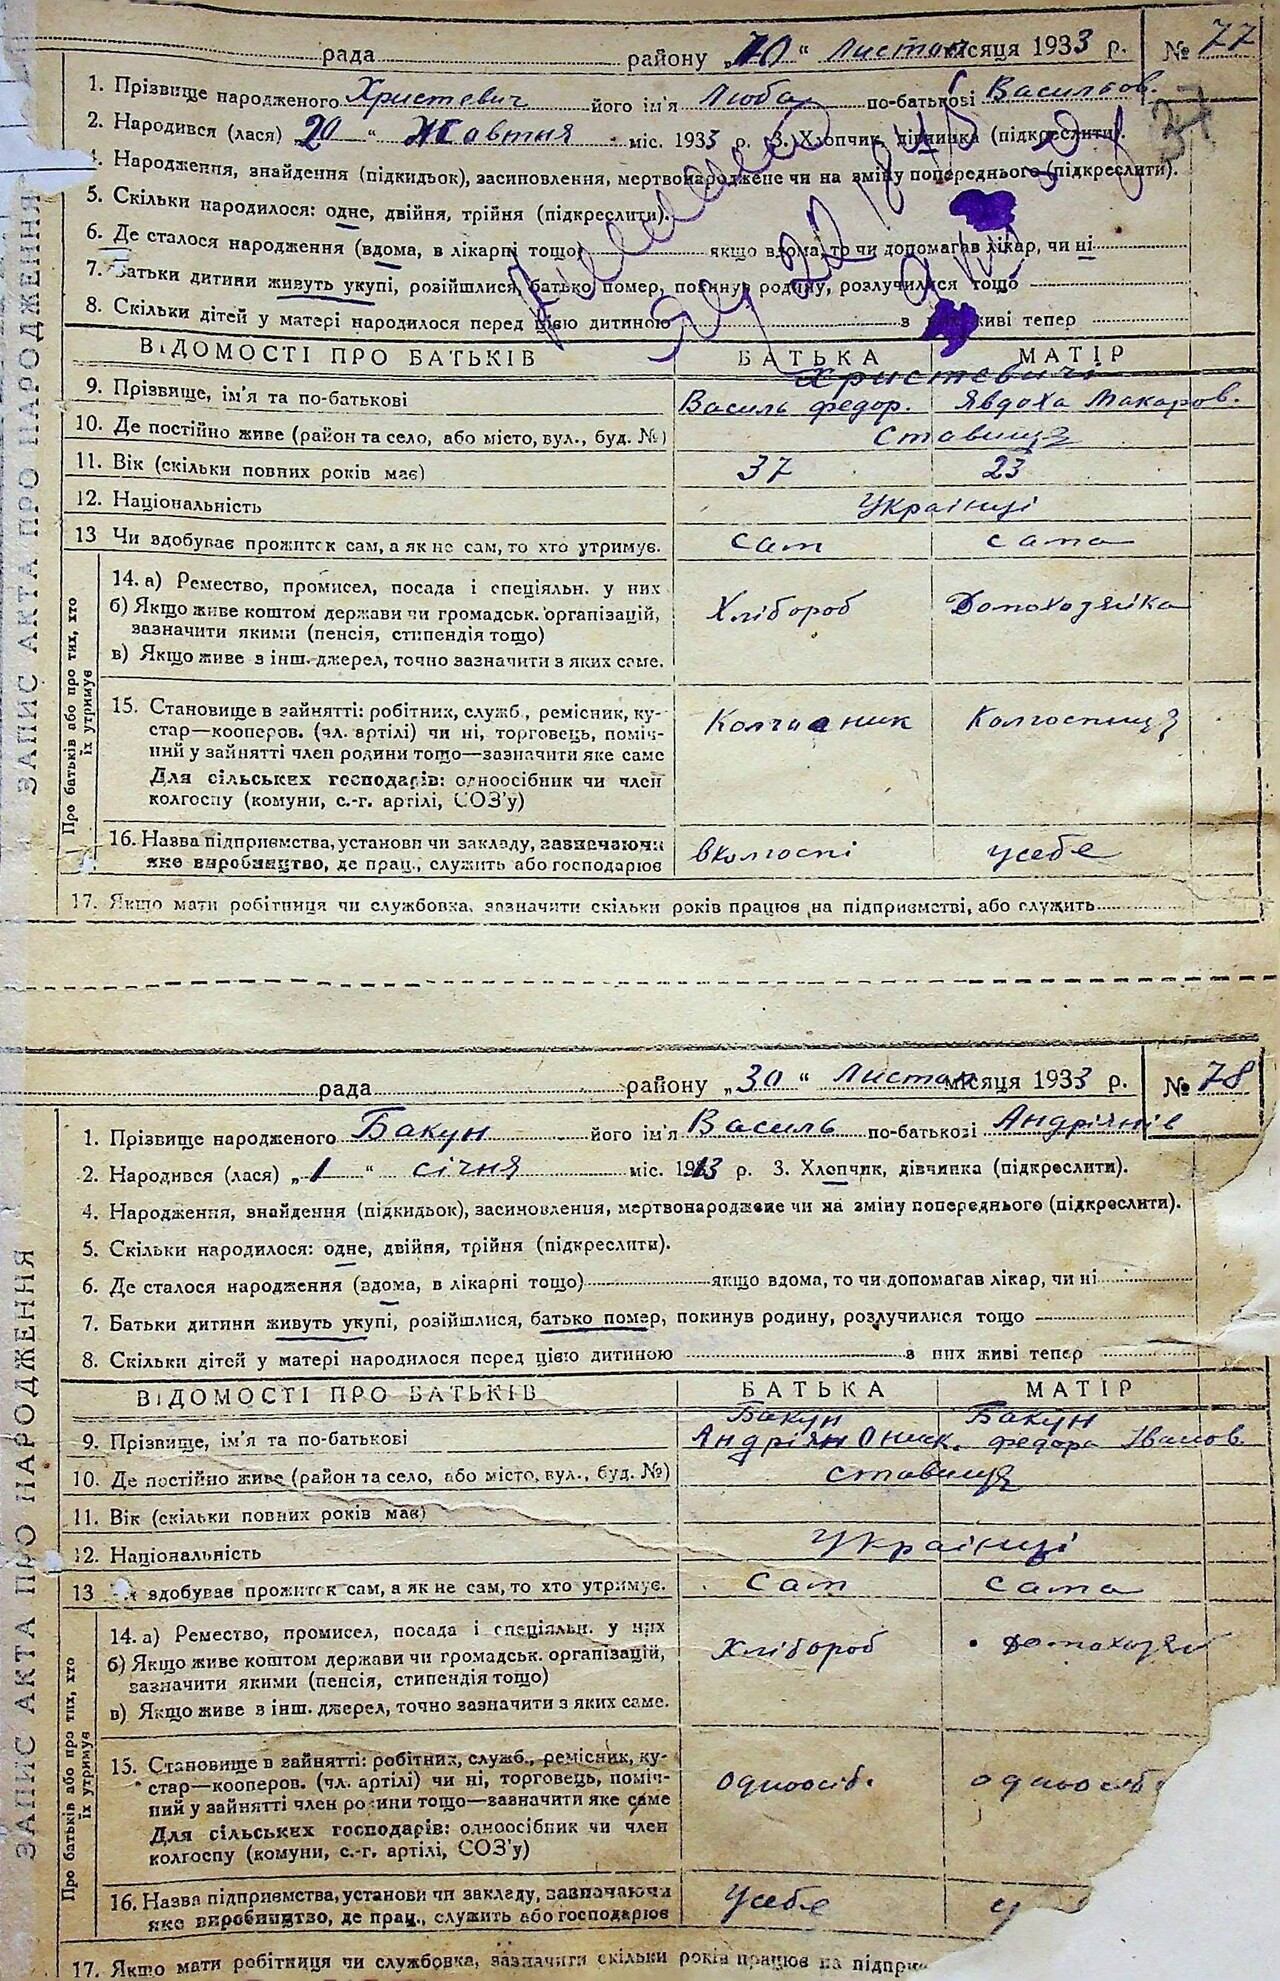 рада району „10“ Листоп місяця 1933 р. № 77
1. Прізвище народженого Христевич його ім'я Люба по-батькові Васильов.
2. Народився (лася) „20“ Жовтня міс. 1933 р. 3. Хлопчик, дівчинка (підкреслити).
4. Народження, знайдення (підкидьок), засиновлення, мертвонароджене чи на зміну попереднього (підкреслити).
5. Скільки народилося: одне, двійня, трійня (підкреслити).
6. Де сталося народження (вдома, в лікарні тощо) якщо вдома, то чи допомагав лікар, чи ні
7. Батьки дитини живуть укупі, розійшлися, батько помер, покинув родину, розлучилися тощо
8. Скільки дітей у матері народилося перед цією дитиною з них живі тепер
ВІДОМОСТІ ПРО БАТЬКІВ БАТЬКА МАТІР
Христевичі
9. Прізвище, ім'я та по-батькові Василь Федор. Явдоха Макаров.
10. Де постійно живе (район та село, або місто, вул., буд. №) Ставище
11. Вік (скільки повних років має) 37 23
12. Національність Українці
13 Чи здобуває прожиток сам, а як не сам, то хто утримує. сам сама
14. а) Ремество, промисел, посада і спеціяльн. у них
б) Якщо живе коштом держави чи громадськ. організацій, Хлібороб Домохозяйка
зазначити якими (пенсія, стипендія тощо)
в) Якщо живе з інш. джерел, точно зазначити з яких саме.
15. Становище в зайнятті: робітник, служб., ремісник, ку-
стар—кооперов. (чл. артілі) чи ні, торговець, поміч- Колгосник Колгоспниця
ний у зайнятті член родини тощо—зазначити яке саме
Для сільських господарів: одноосібник чи член
колгоспу (комуни, с.-г. артілі, СОЗ'у)
16. Назва підприємства, установи чи закладу, зазначаючи
яке виробництво, де прац., служить або господарює вколгоспі усебе
17. Якщо мати робітниця чи службовка, зазначити скільки років працює на підприємстві, або служить
ЗАПИС АКТА ПРО НАРОДЖЕННЯ
Про батьків або про тих, хто
їх утримує
рада району „30“ Листоп місяця 1933 р. № 78
1. Прізвище народженого Бакун його ім'я Василь по-батькові Андріянів
2. Народився (лася) „1“ січня міс. 1913 р. 3. Хлопчик, дівчинка (підкреслити).
4. Народження, знайдення (підкидьок), засиновлення, мертвонароджене чи на зміну попереднього (підкреслити).
5. Скільки народилося: одне, двійня, трійня (підкреслити).
6. Де сталося народження (вдома, в лікарні тощо) якщо вдома, то чи допомагав лікар, чи ні
7. Батьки дитини живуть укупі, розійшлися, батько помер, покинув родину, розлучилися тощо
8. Скільки дітей у матері народилося перед цією дитиною з них живі тепер
ВІДОМОСТІ ПРО БАТЬКІВ БАТЬКА МАТІР
Бакун Бакун
9. Прізвище, ім'я та по-батькові Андріян Оник. Федора Іванов
10. Де постійно живе (район та село, або місто, вул., буд. №) ставище
11. Вік (скільки повних років має)
12. Національність Українці
13 здобуває прожиток сам, а як не сам, то хто утримує. сам сама
14. а) Ремество, промисел, посада і спеціяльн. у них
б) Якщо живе коштом держави чи громадськ. організацій, Хлібороб Домохозяй
зазначити якими (пенсія, стипендія тощо)
в) Якщо живе з інш. джерел, точно зазначити з яких саме.
15. Становище в зайнятті: робітник, служб., ремісник, ку-
стар—кооперов. (чл. артілі) чи ні, торговець, поміч- одноосіб. одноосіб
ний у зайнятті член родини тощо—зазначити яке саме
Для сільських господарів: одноосібник чи член
колгоспу (комуни, с.-г. артілі, СОЗ'у)
16. Назва підприємства, установи чи закладу, зазначаючи
яке виробництво, де прац., служить або господарює Усебе у
17. Якщо мати робітниця чи службовка, зазначити скільки років працює на підпри
ЗАПИС АКТА ПРО НАРОДЖЕННЯ
Про батьків або про тих, хто
їх утримує